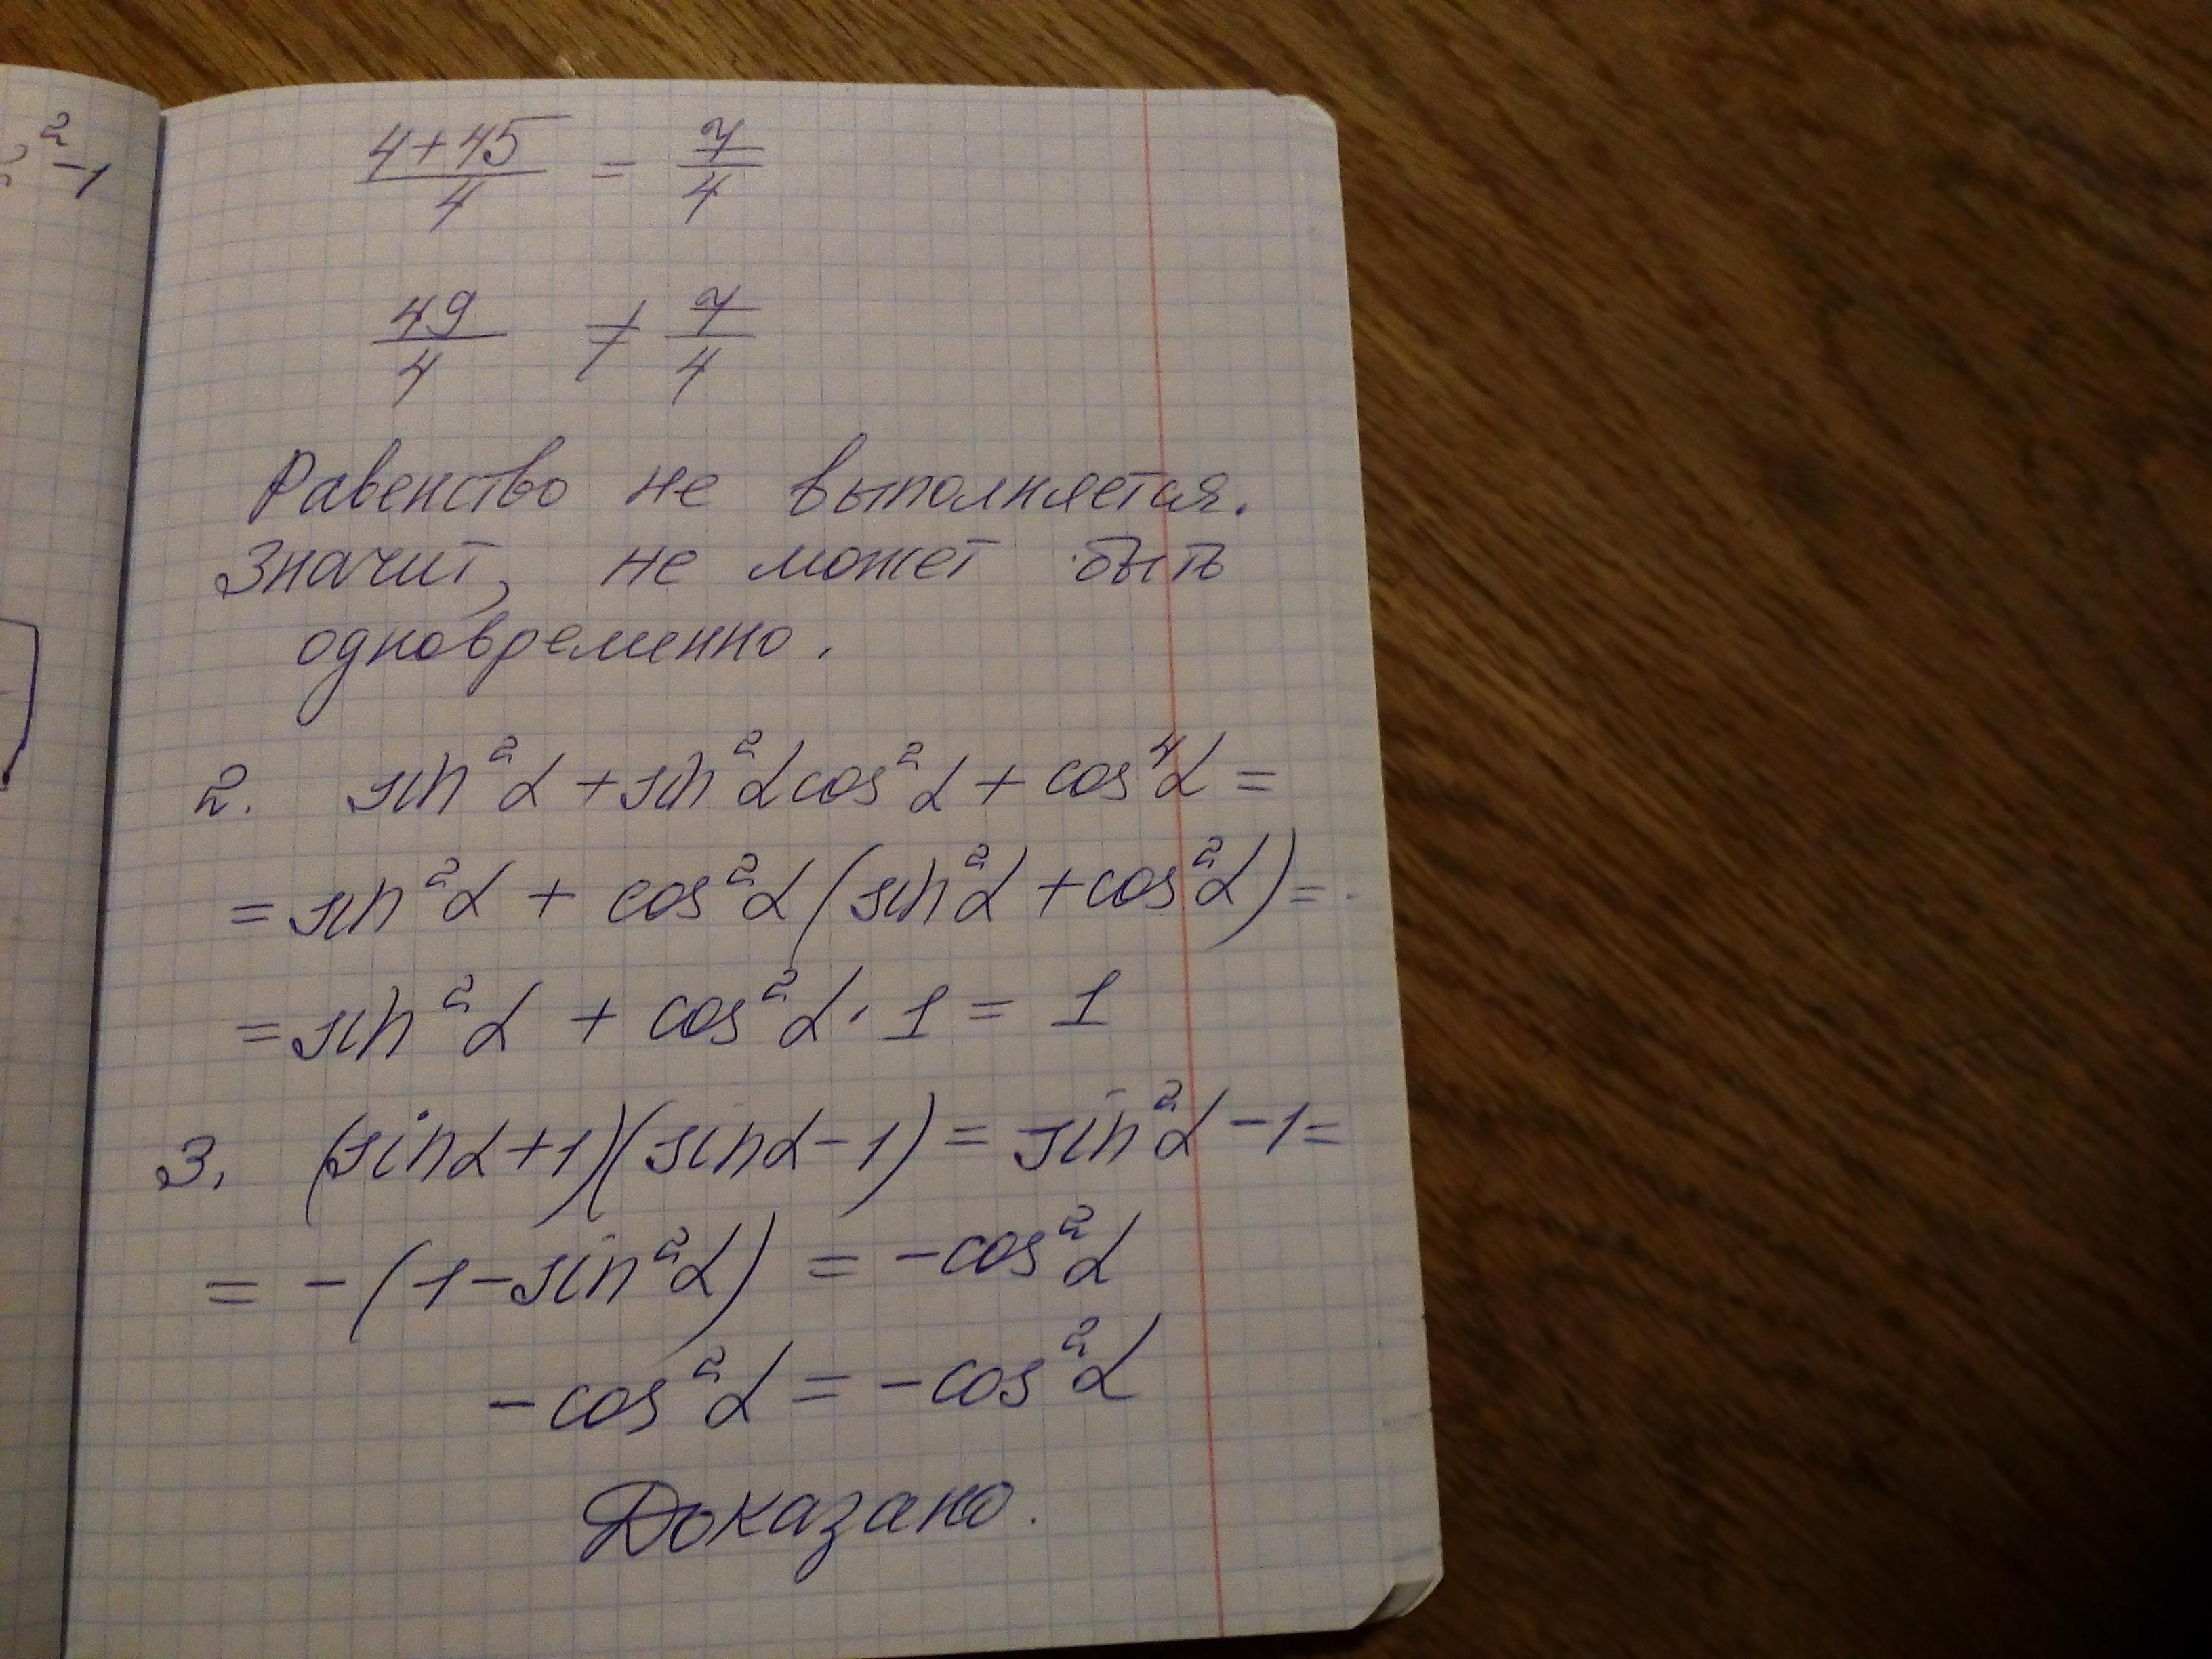 ²-1
(4+45)/4 = 7/4
49/4 ≠ 7/4
Равенство не выполняется.
Значит, не может быть
одновременно.
2. sin²α + sin²α cos²α + cos⁴α =
= sin²α + cos²α (sin²α + cos²α) =
= sin²α + cos²α · 1 = 1
3. (sinα+1)(sinα-1) = sin²α - 1 =
= -(1-sin²α) = -cos²α
-cos²α = -cos²α
Доказано.